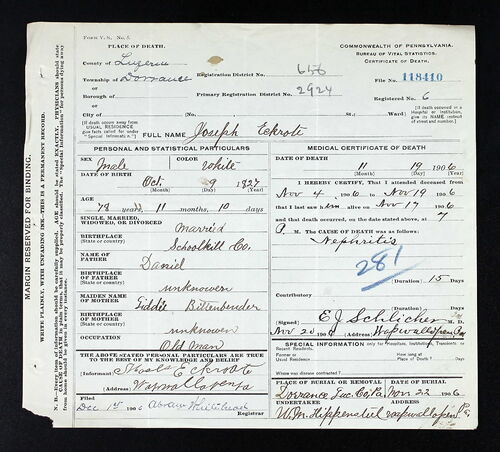 FORM V. S. No. 5.
PLACE OF DEATH.
COMMONWEALTH OF PENNSYLVANIA.
BUREAU OF VITAL STATISTICS.
CERTIFICATE OF DEATH.
County of Luzerne
Township of Dorrance
Registration District No. 656
File No. 118410
Borough of
Primary Registration District No. 2924
Registered No. 6
City of
(No.
St.;
Ward)
[If death occurs away from USUAL RESIDENCE give facts called for under "Special Information."]
[If death occurred in a Hospital or Institution, give its NAME instead of street and number.]
FULL NAME Joseph Eckrote
PERSONAL AND STATISTICAL PARTICULARS
SEX Male
COLOR White
DATE OF BIRTH Oct. 9 1827
(Month) (Day) (Year)
AGE 78 years, 11 months, 10 days
SINGLE, MARRIED, WIDOWED, OR DIVORCED Married
BIRTHPLACE (State or country) Schoolkill Co.
NAME OF FATHER Daniel
BIRTHPLACE OF FATHER (State or country) unknowen
MAIDEN NAME OF MOTHER Liddie Bittenbender
BIRTHPLACE OF MOTHER (State or country) unknowen
OCCUPATION Old Man
THE ABOVE STATED PERSONAL PARTICULARS ARE TRUE TO THE BEST OF MY KNOWLEDGE AND BELIEF
(Informant Eckroate
(Address
Filed Dec 1st 1906
Registrar
MEDICAL CERTIFICATE OF DEATH
DATE OF DEATH
11 19 1906
(Month) (Day) (Year)
I HEREBY CERTIFY, That I attended deceased from
Nov 4 1906 to Nov 19 1906
that I last saw him alive on Nov 17 1906
and that death occurred, on the date stated above, at 7
P. M. The CAUSE OF DEATH was as follows:
Nephritis
281
(Duration) 15 Days
Contributory
(Duration) Days
(Signed) E J Schlicher M. D.
Nov 20 1906 (Address) Wapwallopen Pa
SPECIAL INFORMATION only for Hospitals, Institutions, Transients or Recent Residents.
Former or Usual Residence
How long at Place of Death? Days
Where was disease contracted, if not at place of death?
PLACE OF BURIAL OR REMOVAL Dorrance Luz. Co. Pa.
DATE OF BURIAL Nov 22 1906
UNDERTAKER W. M. Hippensteel
(Address) wapwallopen Pa.
MARGIN RESERVED FOR BINDING.